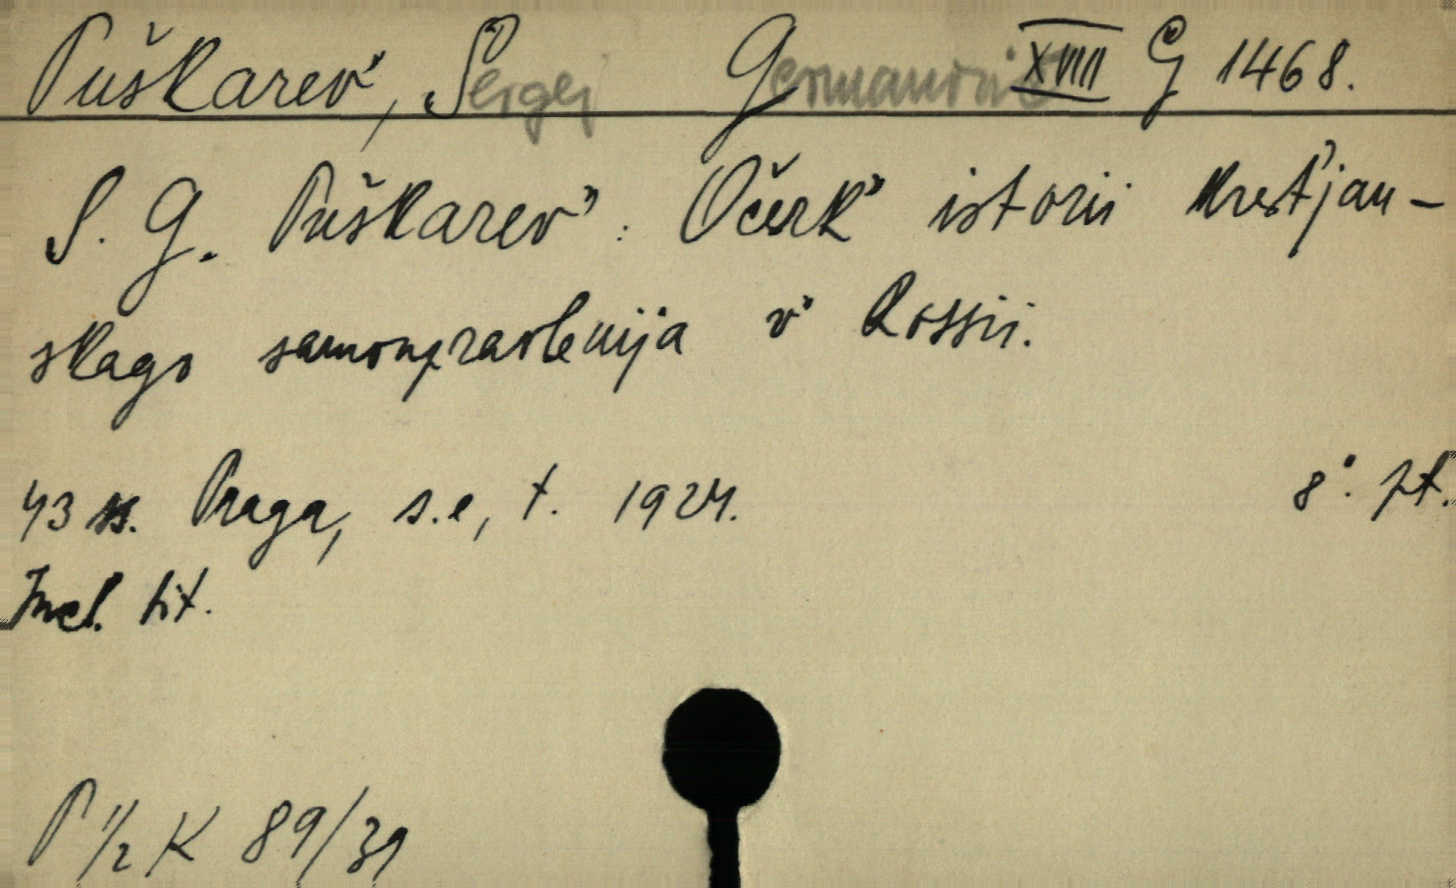 Puškarev", Sergej Germanovič XVIII G 1468.
S. G. Puškarev": Očerk" istorii krest'jan-
skago samoupravlenija v" Rossii.
43 ss. Praga, s.e, t. 1924. 8°. pt.
Incl. tit.
P 1/2 K 89/39